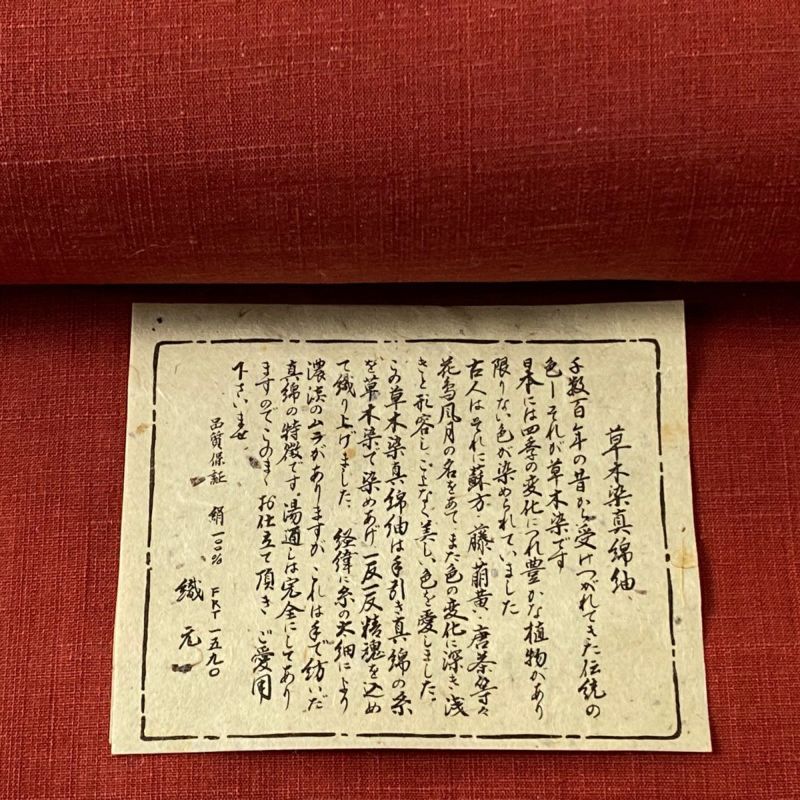 草木染真綿紬
千数百年の昔から受けつがれてきた伝統の
色ーそれが草木染です
日本には四季の変化につれ豊かな植物があり
限りない色が染められていました
古人はそれに蘇方、藤、萠黄、唐茶等々
花鳥風月の名をあて、また色の変化に深き浅
きと形容し、こよなく美しい色を愛しました。
この草木染真綿紬は手引き真綿の糸
を草木染で染めあげ一反一反精魂を込め
て織り上げました、経緯に糸の太細により
濃淡のムラがありますが、これは手で紡いだ
真綿の特徴です。湯通しは完全にしてあり
ますのでこのまゝお仕立て頂き、ご愛用
下さいませ
品質保証 絹一〇〇% FKT一五九〇
織元